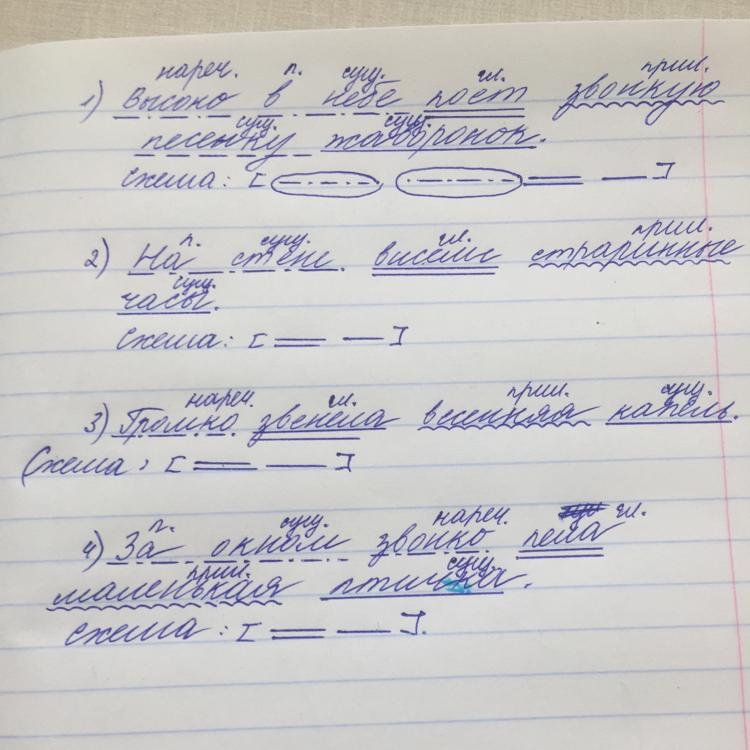 нареч. п. сущ. гл. прил.
1) Высоко в небе поет звонкую
сущ. сущ.
песенку жаворонок.
Схема: [ ]
п. сущ. гл. прил.
2) На стене висели старинные
сущ.
часы.
Схема: [ ]
нареч. гл. прил. сущ.
3) Громко звенела весенняя капель.
Схема: [ ]
п. сущ. нареч. гл.
4) За окном звонко пела
прил. сущ.
маленькая птичка.
Схема: [ ].